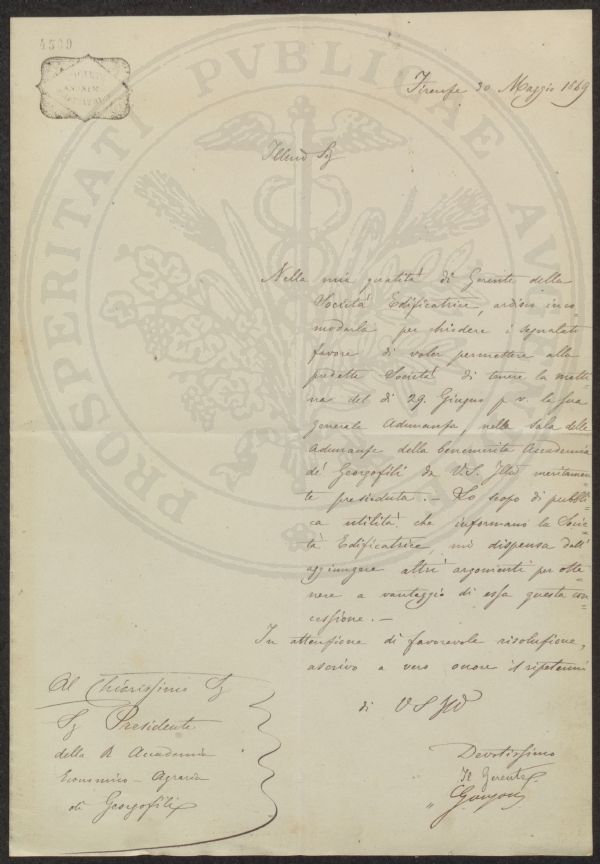 4509
PROSPERITATI PVBLICAE AVGENDAE
Firenze 30 Maggio 1869
Illmo Sg
Nella mia qualità di Gerente della
Società Edificatrice, ardisco inco=
modarla per chiedere il segnalato
favore di voler permettere alla
predetta Società di tenere la matti
na del dì 29 Giugno p. v. la sua
generale Adunanza, nella Sala delle
adunanze della benemerita Accademia
de' Georgofili da V.S. Illma meritamen=
te presieduta. — Lo scopo di pubbli=
ca utilità, che informano la Socie=
tà Edificatrice, mi dispensa dall'
aggiungere altri argomenti per otte=
nere a vantaggio di essa questa con=
cessione. —
In attenzione di favorevole risoluzione,
ascrivo a vero onore il ripetermi
di V S Illma
Devotissimo
Il Gerente
Al Chiarissimo Sg
Sg Presidente
della R Accademia
Economico-Agraria
di Georgofili